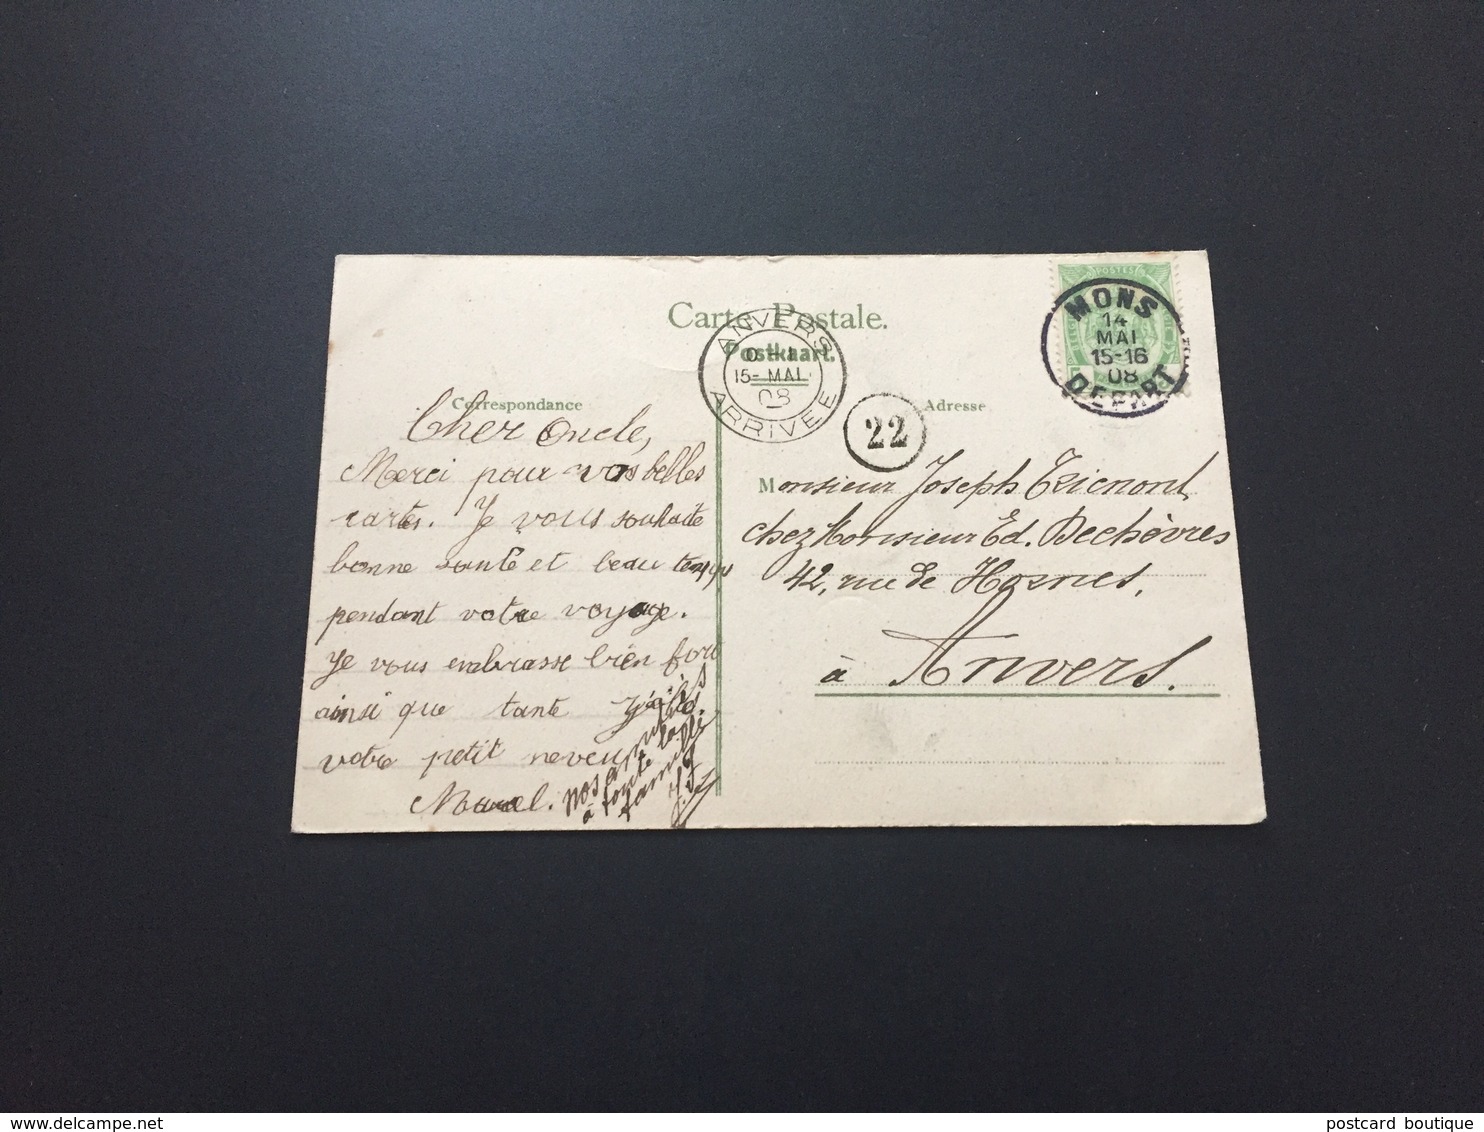 Carte Postale.
Postkaart.
Correspondance
Adresse
ANVERS
15-MAI
08
ARRIVEE
22
POSTES
MONS
14
MAI
15-16
08
DEPART
Cher Oncle,
Merci pour vos belles
cartes. Je vous souhaite
bonne santé et beau temps
pendant votre voyage.
Je vous embrasse bien fort
ainsi que tante
votre petit neveu
Marcel.
nos amitiés
à toute la
famille
Monsieur Joseph
chez Monsieur Ed. Dechèvres
42, rue de
à Anvers.
delcampe.net
postcard boutique